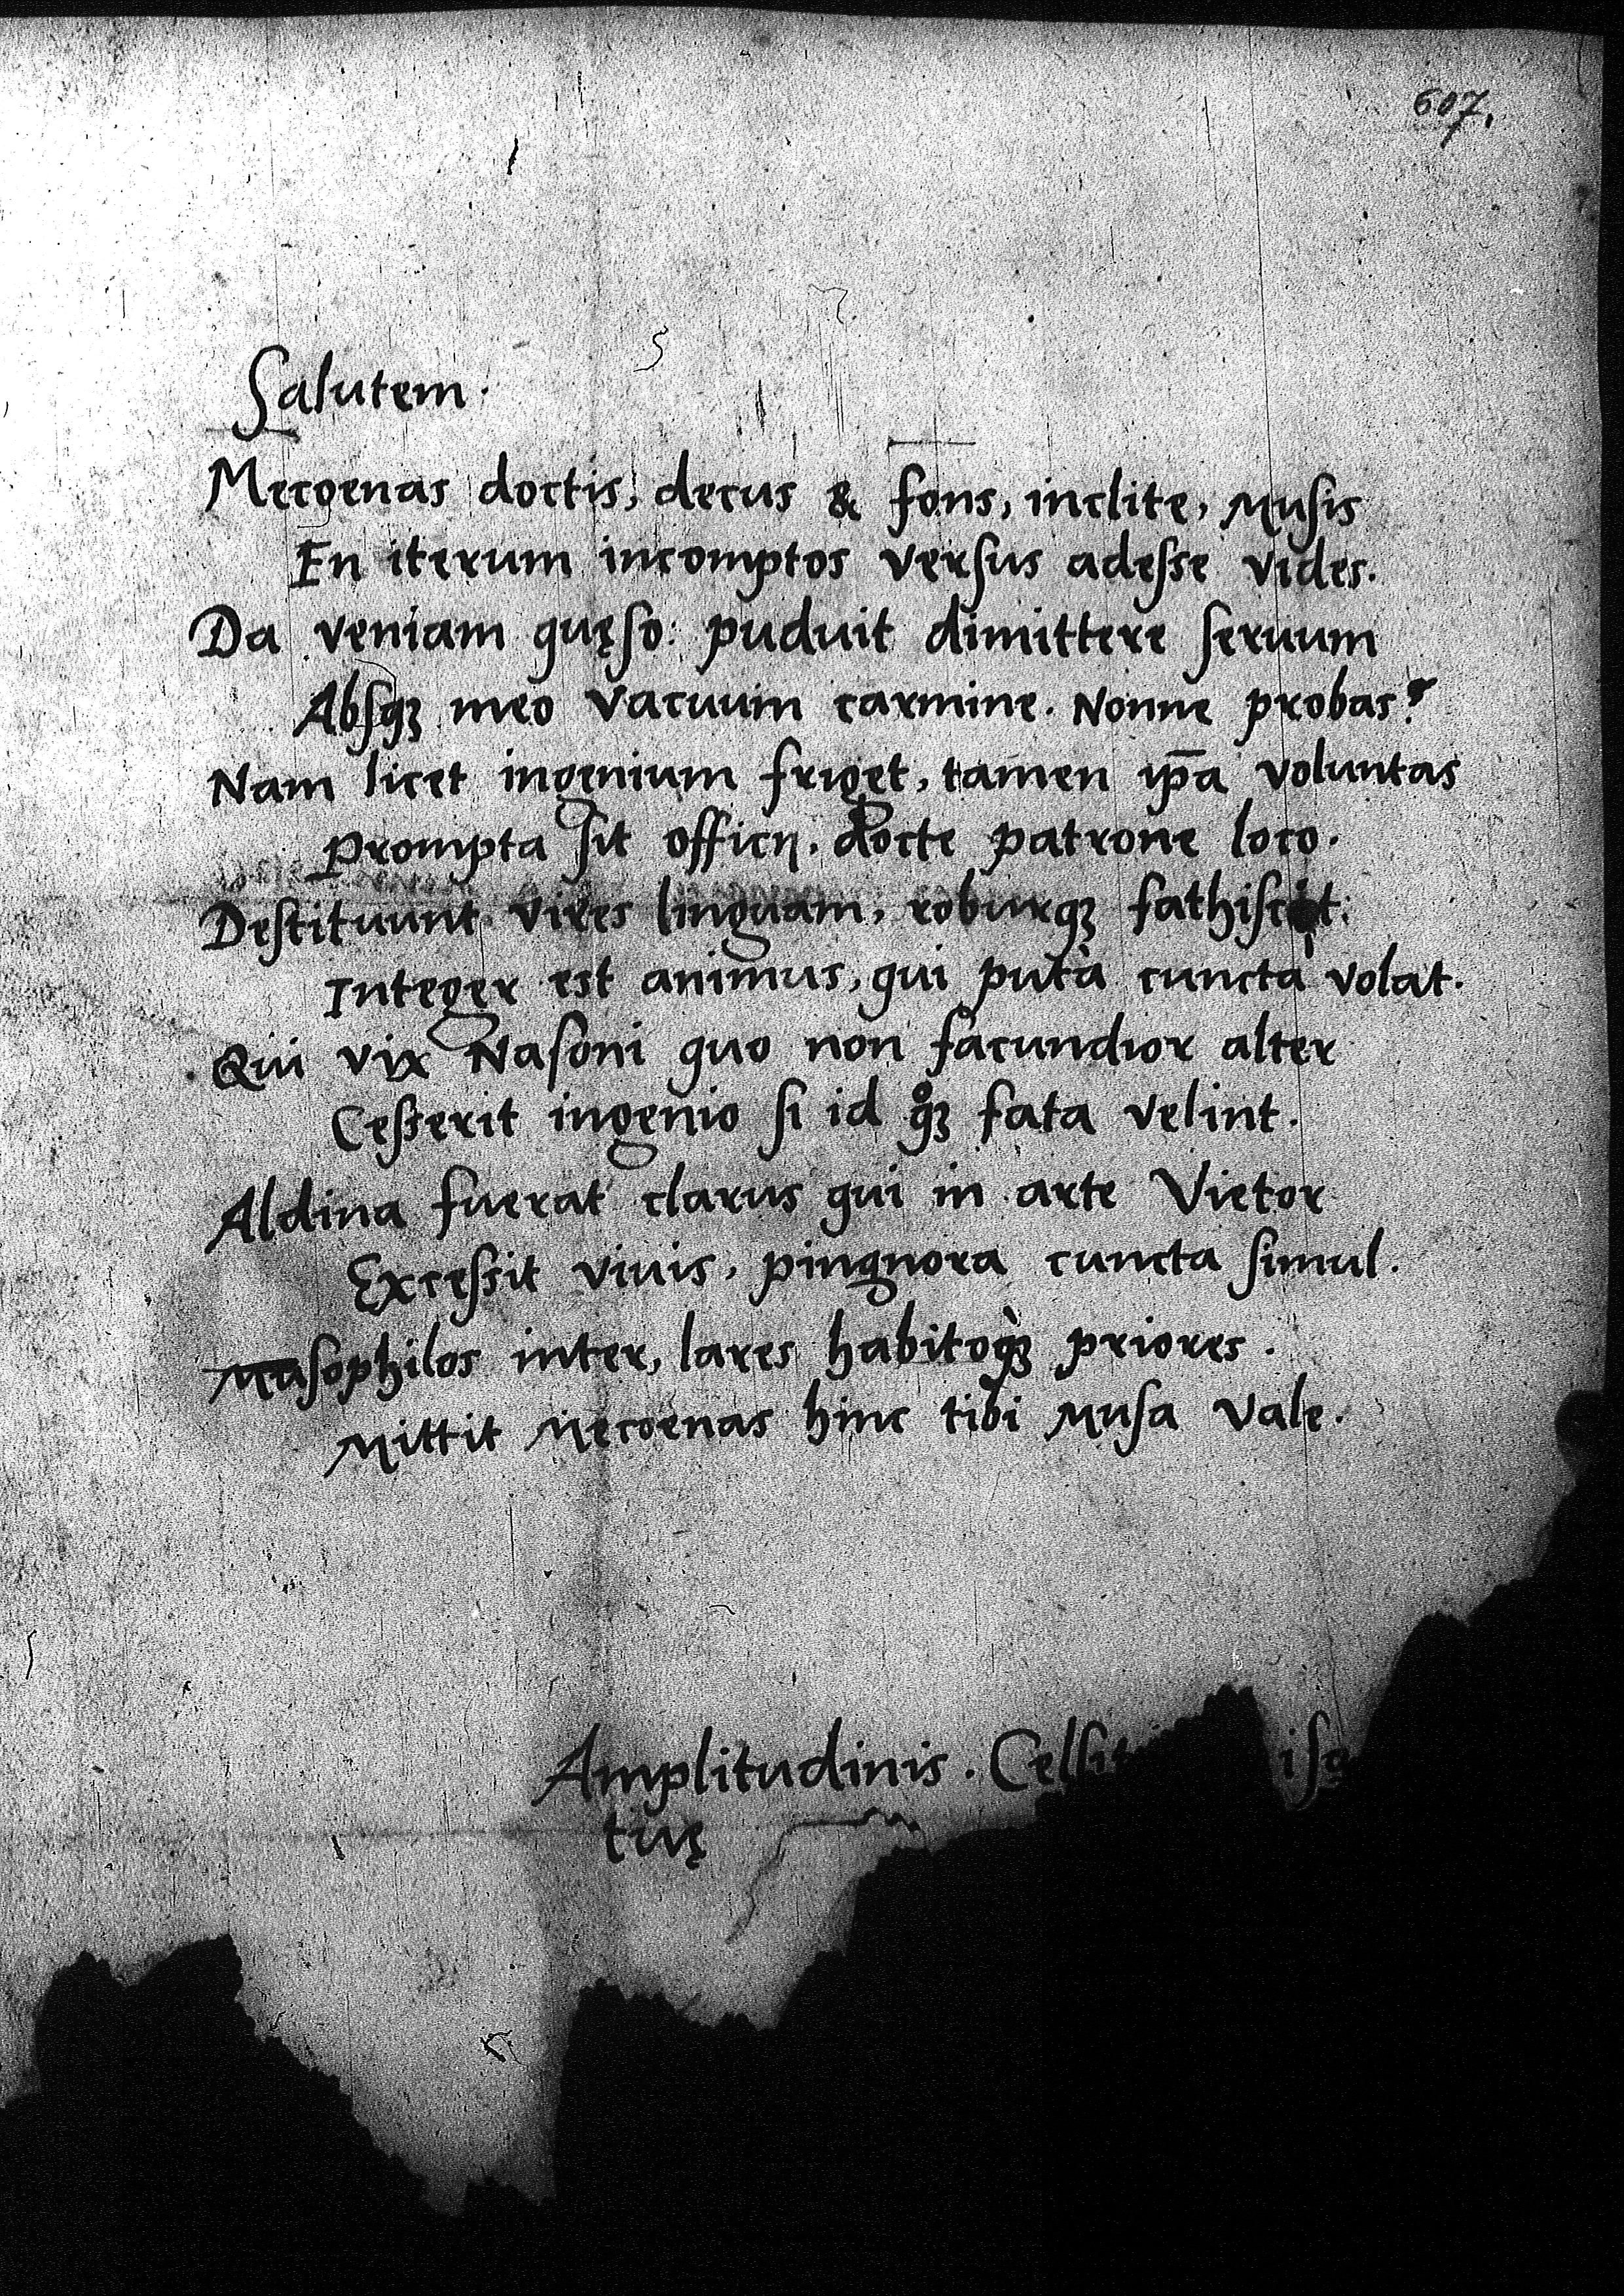 607.
Salutem.
Mecoenas doctis, decus & fons, inclite, Musis
En iterum incomptos versus adesse vides.
Da veniam quęso: puduit dimittere seruum
Absqꝫ meo vacuum carmine. Nonne probas?
Nam licet ingenium friget, tamen ip̄a voluntas
Prompta sit officij. docte patrone loco.
Destituunt vires linguam, roburqꝫ fathiscit:
Integer est animus, qui putà cuncta volat.
Qui vix Nasoni quo non facundior alter
Cesserit ingenio si id qͦꝫ fata velint.
Aldina fuerat clarus qui in arte Vietor
Excessit viuis, pingnora cuncta simul.
Musophilos inter, lares habitoqꝫ̀ priores.
Mittit Mecoenas hinc tibi Musa Vale.
Amplitudinis. Celsit
tuę